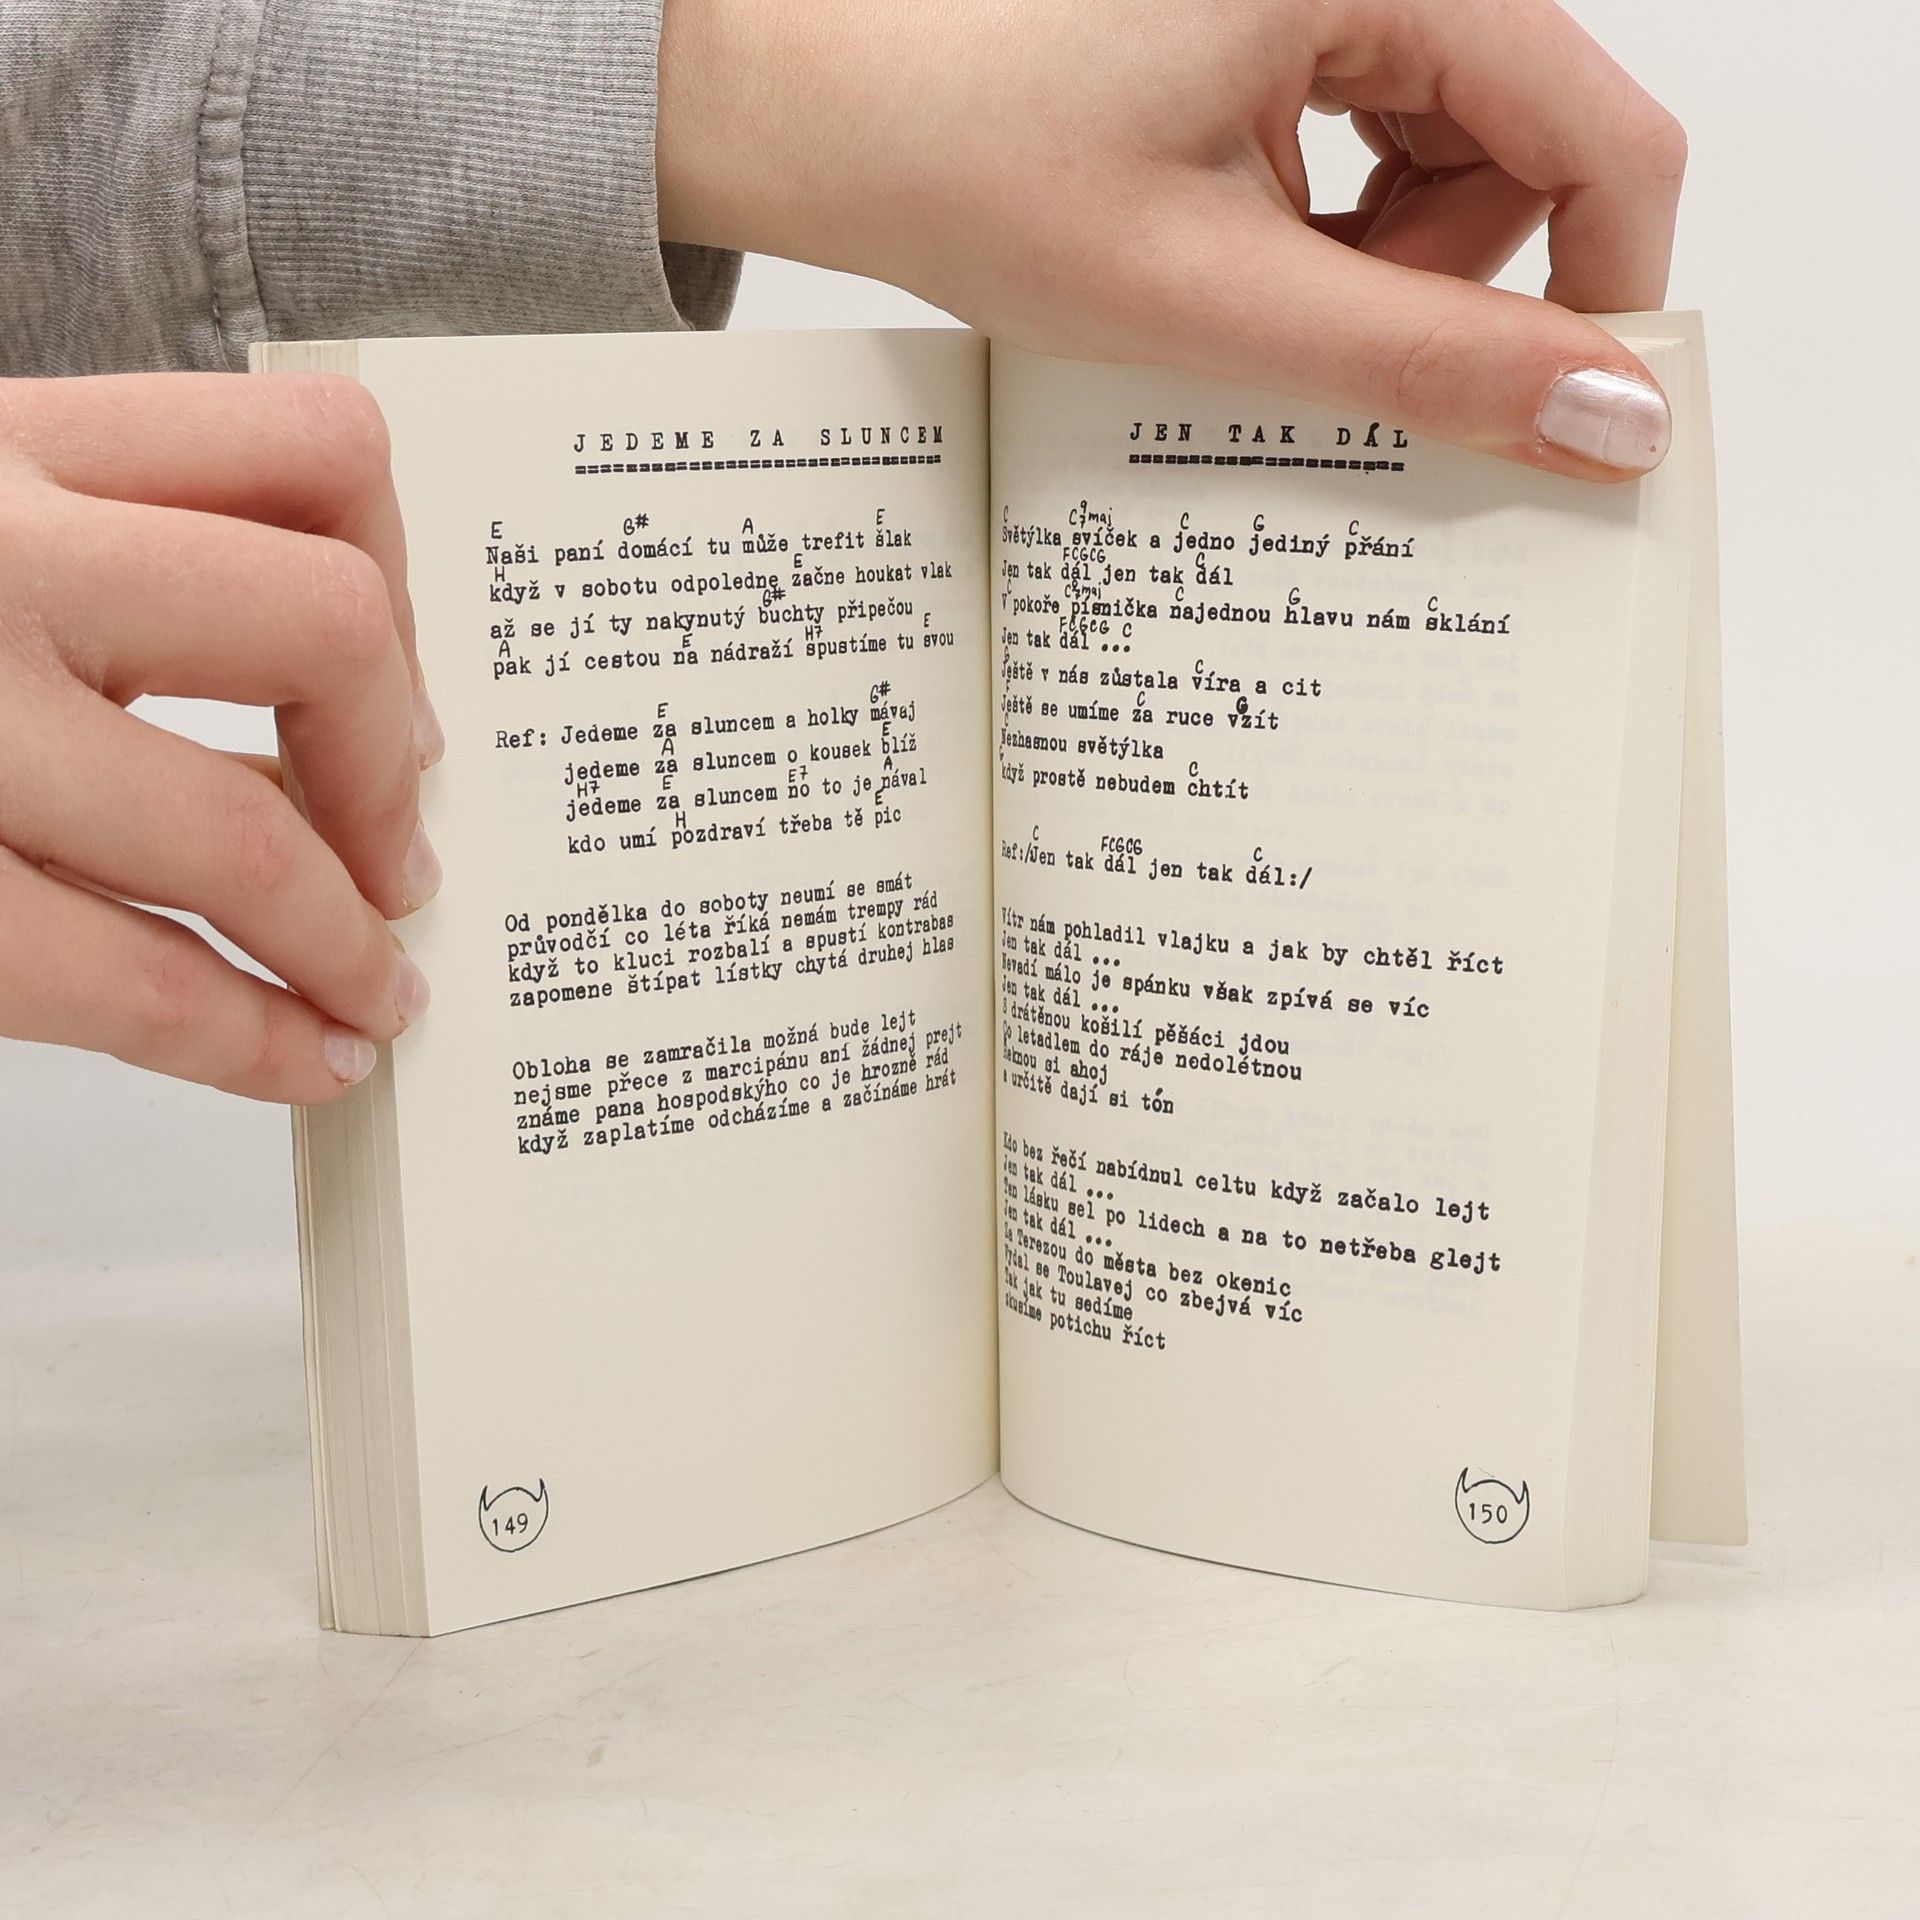 JEDEME ZA SLUNCEM
E G# A E
Naši paní domácí tu může trefit šlak
H E
když v sobotu odpoledne začne houkat vlak
G#
až se jí ty nakynutý buchty připečou
A E H7 E
pak jí cestou na nádraží spustíme tu svou
E G#
Ref: Jedeme za sluncem a holky mávaj
A E
jedeme za sluncem o kousek blíž
H7 E E7 A
jedeme za sluncem no to je nával
H E
kdo umí pozdraví třeba tě pic
Od pondělka do soboty neumí se smát
průvodčí co léta říká nemám trempy rád
když to kluci rozbalí a spustí kontrabas
zapomene štípat lístky chytá druhej hlas
Obloha se zamračila možná bude lejt
nejsme přece z marcipánu aní žádnej prejt
známe pana hospodskýho co je hrozně rád
když zaplatíme odcházíme a začínáme hrát
149
JEN TAK DÁL
C C9 7maj C G C
Světýlka svíček a jedno jediný přání
FCGCG C
Jen tak dál jen tak dál
C C9 7maj C G C
V pokoře písnička najednou hlavu nám sklání
FCGCG C
Jen tak dál ...
G C
Ještě v nás zůstala víra a cit
F C G
Ještě se umíme za ruce vzít
C
Nezhasnou světýlka
G C
když prostě nebudem chtít
C FCGCG C
Ref:/Jen tak dál jen tak dál:/
Vítr nám pohladil vlajku a jak by chtěl říct
Jen tak dál ...
Nevadí málo je spánku však zpívá se víc
Jen tak dál ...
S drátěnou košilí pěšáci jdou
Co letadlem do ráje nedolétnou
Řeknou si ahoj
a určitě dají si tón
Kdo bez řečí nabídnul celtu když začalo lejt
Jen tak dál ...
Ten lásku sel po lidech a na to netřeba glejt
Jen tak dál ...
Za Terezou do města bez okenic
Vydal se Toulavej co zbejvá víc
Tak jak tu sedíme
zkusíme potichu říct
150